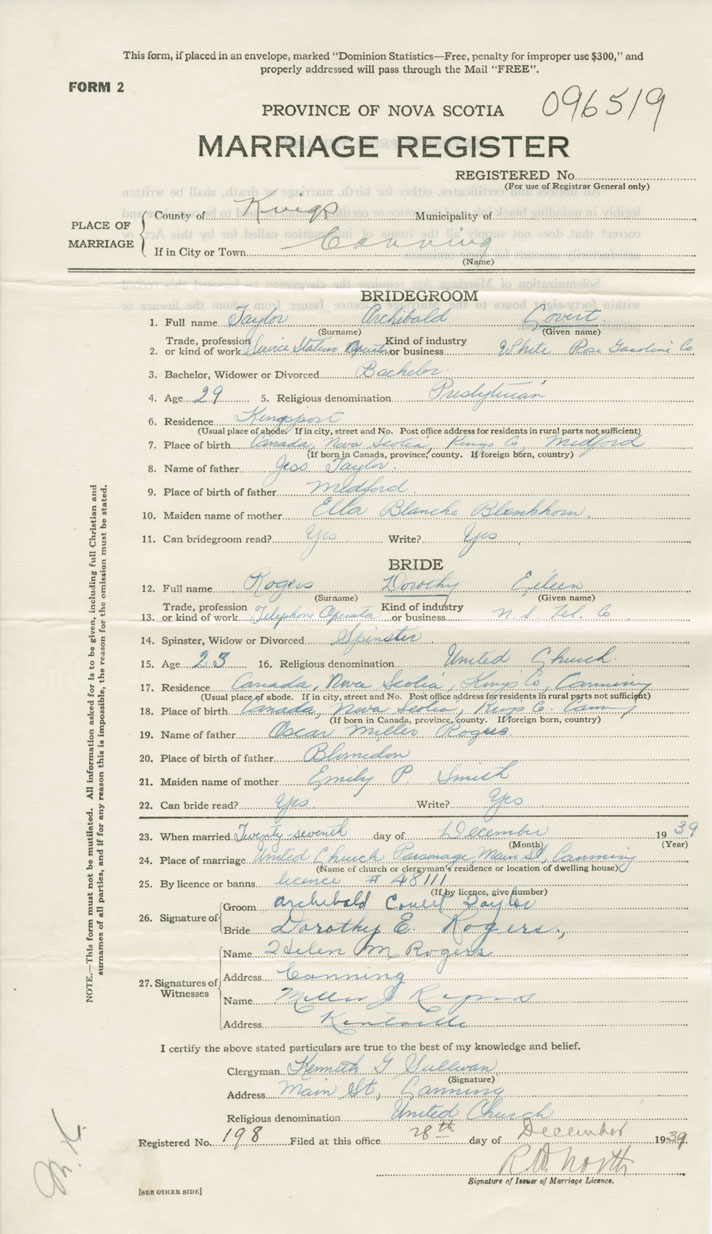 This form, if placed in an envelope, marked "Dominion Statistics—Free, penalty for improper use $300," and
properly addressed will pass through the Mail "FREE".
FORM 2
096519
PROVINCE OF NOVA SCOTIA
MARRIAGE REGISTER
REGISTERED No.
(For use of Registrar General only)
PLACE OF MARRIAGE
County of Kings Municipality of
If in City or Town Canning
(Name)
BRIDEGROOM
1. Full name Taylor Archibald Covert
(Surname) (Given name)
2. Trade, profession or kind of work Service Station Operator Kind of industry or business White Rose Gasoline Co
3. Bachelor, Widower or Divorced Bachelor
4. Age 29 5. Religious denomination Presbyterian
6. Residence Kingsport
(Usual place of abode. If in city, street and No. Post office address for residents in rural parts not sufficient)
7. Place of birth Canada, Nova Scotia, Kings Co, Medford
(If born in Canada, province, county. If foreign born, country)
8. Name of father Jess Taylor.
9. Place of birth of father Medford
10. Maiden name of mother Ella Blanche Blenkhorn.
11. Can bridegroom read? Yes. Write? Yes.
BRIDE
12. Full name Rogers Dorothy Eileen
(Surname) (Given name)
13. Trade, profession or kind of work Telephone Operator Kind of industry or business N. S. Tel. Co
14. Spinster, Widow or Divorced Spinster
15. Age 23 16. Religious denomination United Church.
17. Residence Canada, Nova Scotia, Kings Co, Canning
(Usual place of abode. If in city, street and No. Post office address for residents in rural parts not sufficient)
18. Place of birth Canada, Nova Scotia, Kings Co. Canning
(If born in Canada, province, county. If foreign born, country)
19. Name of father Oscar Miller Rogers
20. Place of birth of father Blomedon
21. Maiden name of mother Emily P. Smith
22. Can bride read? Yes Write? Yes
23. When married Twenty-seventh day of December 1939
(Month) (Year)
24. Place of marriage United Church Parsonage, Main St, Canning
(Name of church or clergyman's residence or location of dwelling house)
25. By licence or banns licence # 48111
(If by licence, give number)
26. Signature of
Groom Archibald Covert Taylor
Bride Dorothy E. Rogers.,
27. Signatures of Witnesses
Name Helen M Rogers
Address Canning
Name
Address Kentville
I certify the above stated particulars are true to the best of my knowledge and belief.
Clergyman Kenneth G Sullivan
(Signature)
Address Main St, Canning
Religious denomination United Church
Registered No. 198 Filed at this office 28th day of December 1939
Signature of Issuer of Marriage Licence.
[SEE OTHER SIDE]
NOTE.—This form must not be mutilated. All information asked for is to be given, including full Christian and
surnames of all parties, and if for any reason this is impossible, the reason for the omission must be stated.